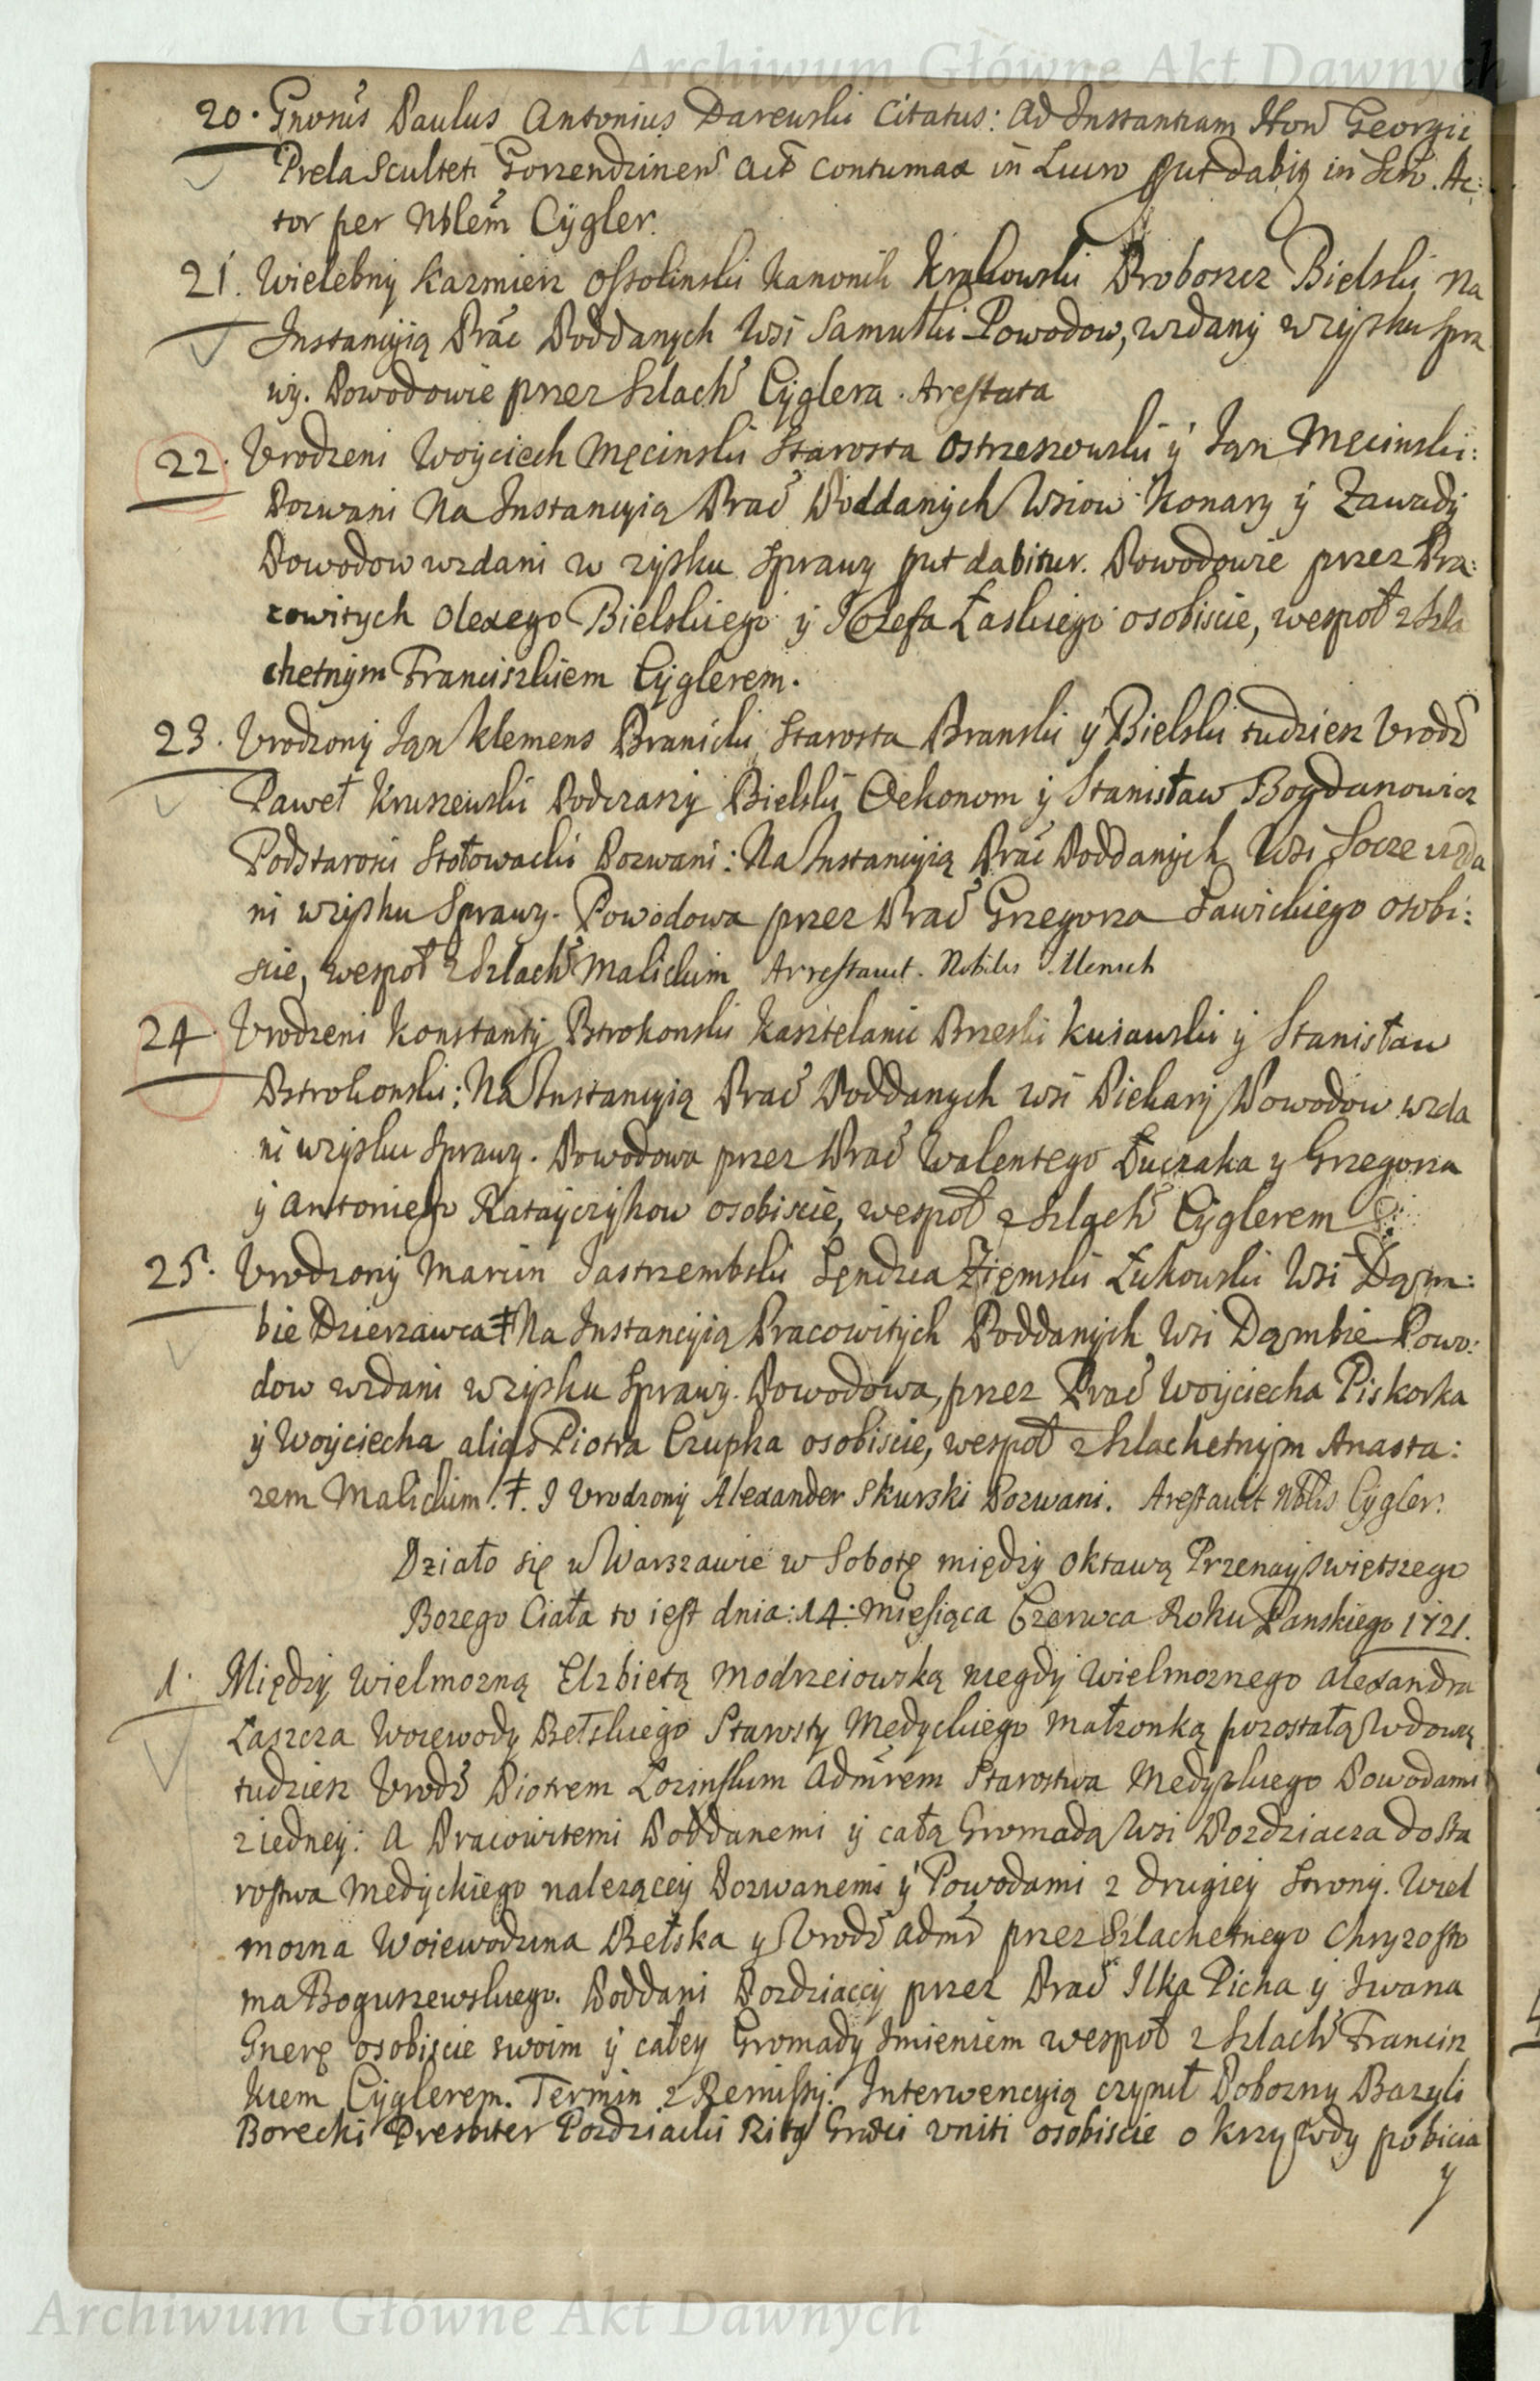 Archiwum Główne Akt Dawnych
20. Gnosus Paulus Antonius Darewski Citatus: Ad Instantiam Hon Georgii
Prela Sculteti Gorzendzinen Act contumax in Lucro put dabit in Sen. Ac:
tor per Nblem Cÿgler.
21. Wielebny Kazmierz Ossolinski Kanonik Krakowski Proboszcz Bielski na
Instancyią Prac Poddanych Wsi Samułki Powodow, wzdany w zysku spra
wy. Powodowie przez Szlach Cÿglera. Arestata
22. Vrodzeni Woyciech Męcinski Starosta Ostrzeszowski ÿ Jan Męcinski:
Pozwani Na Instancyią Prac Poddanych Wsiow Konary ÿ Zawady
Powodow wzdani w zysku sprawy put dabitur. Powodowie przez Pra:
cowitych Olexego Bielskiego ÿ Jozefa Łaskiego osobiscie, wespoł z Szla
chetnym Franciszkiem Cÿglerem.
23. Vrodzony Jan Klemens Branicki, Starosta Branski ÿ Bielski tudziesz Vrodz
Paweł Kruszewski Podczaszy Bielski Oekonom ÿ Stanisław Bogdanowicz
Podstarosci Stołowacki Pozwani: Na Instancyią Prac Poddanych Wsi Socze wzda
ni w zysku sprawy. Powodowa przez Prac Grzegorza Sawickiego osobi:
scie, wespoł z Szlach Malickim Arrestavit. Nobilis Mensch
24. Vrodzeni Konstanty Pstrokonski Kasztelanic Brzeski Kuiawski ÿ Stanisław
Pstrokonski: Na Instancyią Prac Poddanych wsi Piekary Powodow wzda
ni w zysku sprawy. Powodowa przez Prac Walentego Łuczaka y Grzegorza
ÿ Antoniego Katayczykow osobiscie, wespoł z Szlach Cÿglerem
25. Vrodzony Marcin Jastrzembski Sędzia Ziemski Łukowski Wsi Dąm:
bie Dzierzawca ‡ Na Instancyią Pracowitych Poddanych Wsi Dąmbie Powo:
dow wzdani w zysku sprawy. Powodowa, przez Prac Woyciecha Piskorka
ÿ Woyciecha alias Piotra Czupka osobiscie, wespoł z Szlachetnym Anasta:
zem Malickim. ‡. J Vrodzony Alexander Skurski Pozwani. Arestavit Nblis Cÿgler.
Działo się w Warszawie w Sobotę między oktawą Przenayswiętszego
Bozego Ciała to iest dnia: 14: Miesiąca Czerwca Roku Panskiego 1721.
1. Między Wielmozną Elzbietą Modrzeiowską niegdy Wielmoznego Alexandra
Łaszcza Woiewody Bełskiego Starosty Medyckiego małzonką pozostałą Wdową
tudziesz Vrodz Piotrem Łozinskim Admrem Starostwa Medyckiego Powodami
z iedney: A Pracowitemi Poddanemi ÿ całą Gromadą Wsi Pozdziacza do Sta
rostwa Medyckiego nalezącey Pozwanemi ÿ Powodami z drugiey strony. Wiel
mozna Woiewodzina Bełska y Vrodz Admr przez Szlachetnego Chryzosto
ma Boguszewskiego. Poddani Pozdziaccy przez Prac Ilka Picha ÿ Iwana
Gnerę osobiscie swoim ÿ całey Gromady Imieniem wespoł z Szlach Francisz
kiem Cÿglerem. Termin z Remissy. Interwencyią czynił Pobozny Bazyli
Borecki Presbiter Pozdziacki Ritg Graeci vniti osobiscie o krzywdy pobicia
y
Archiwum Główne Akt Dawnych